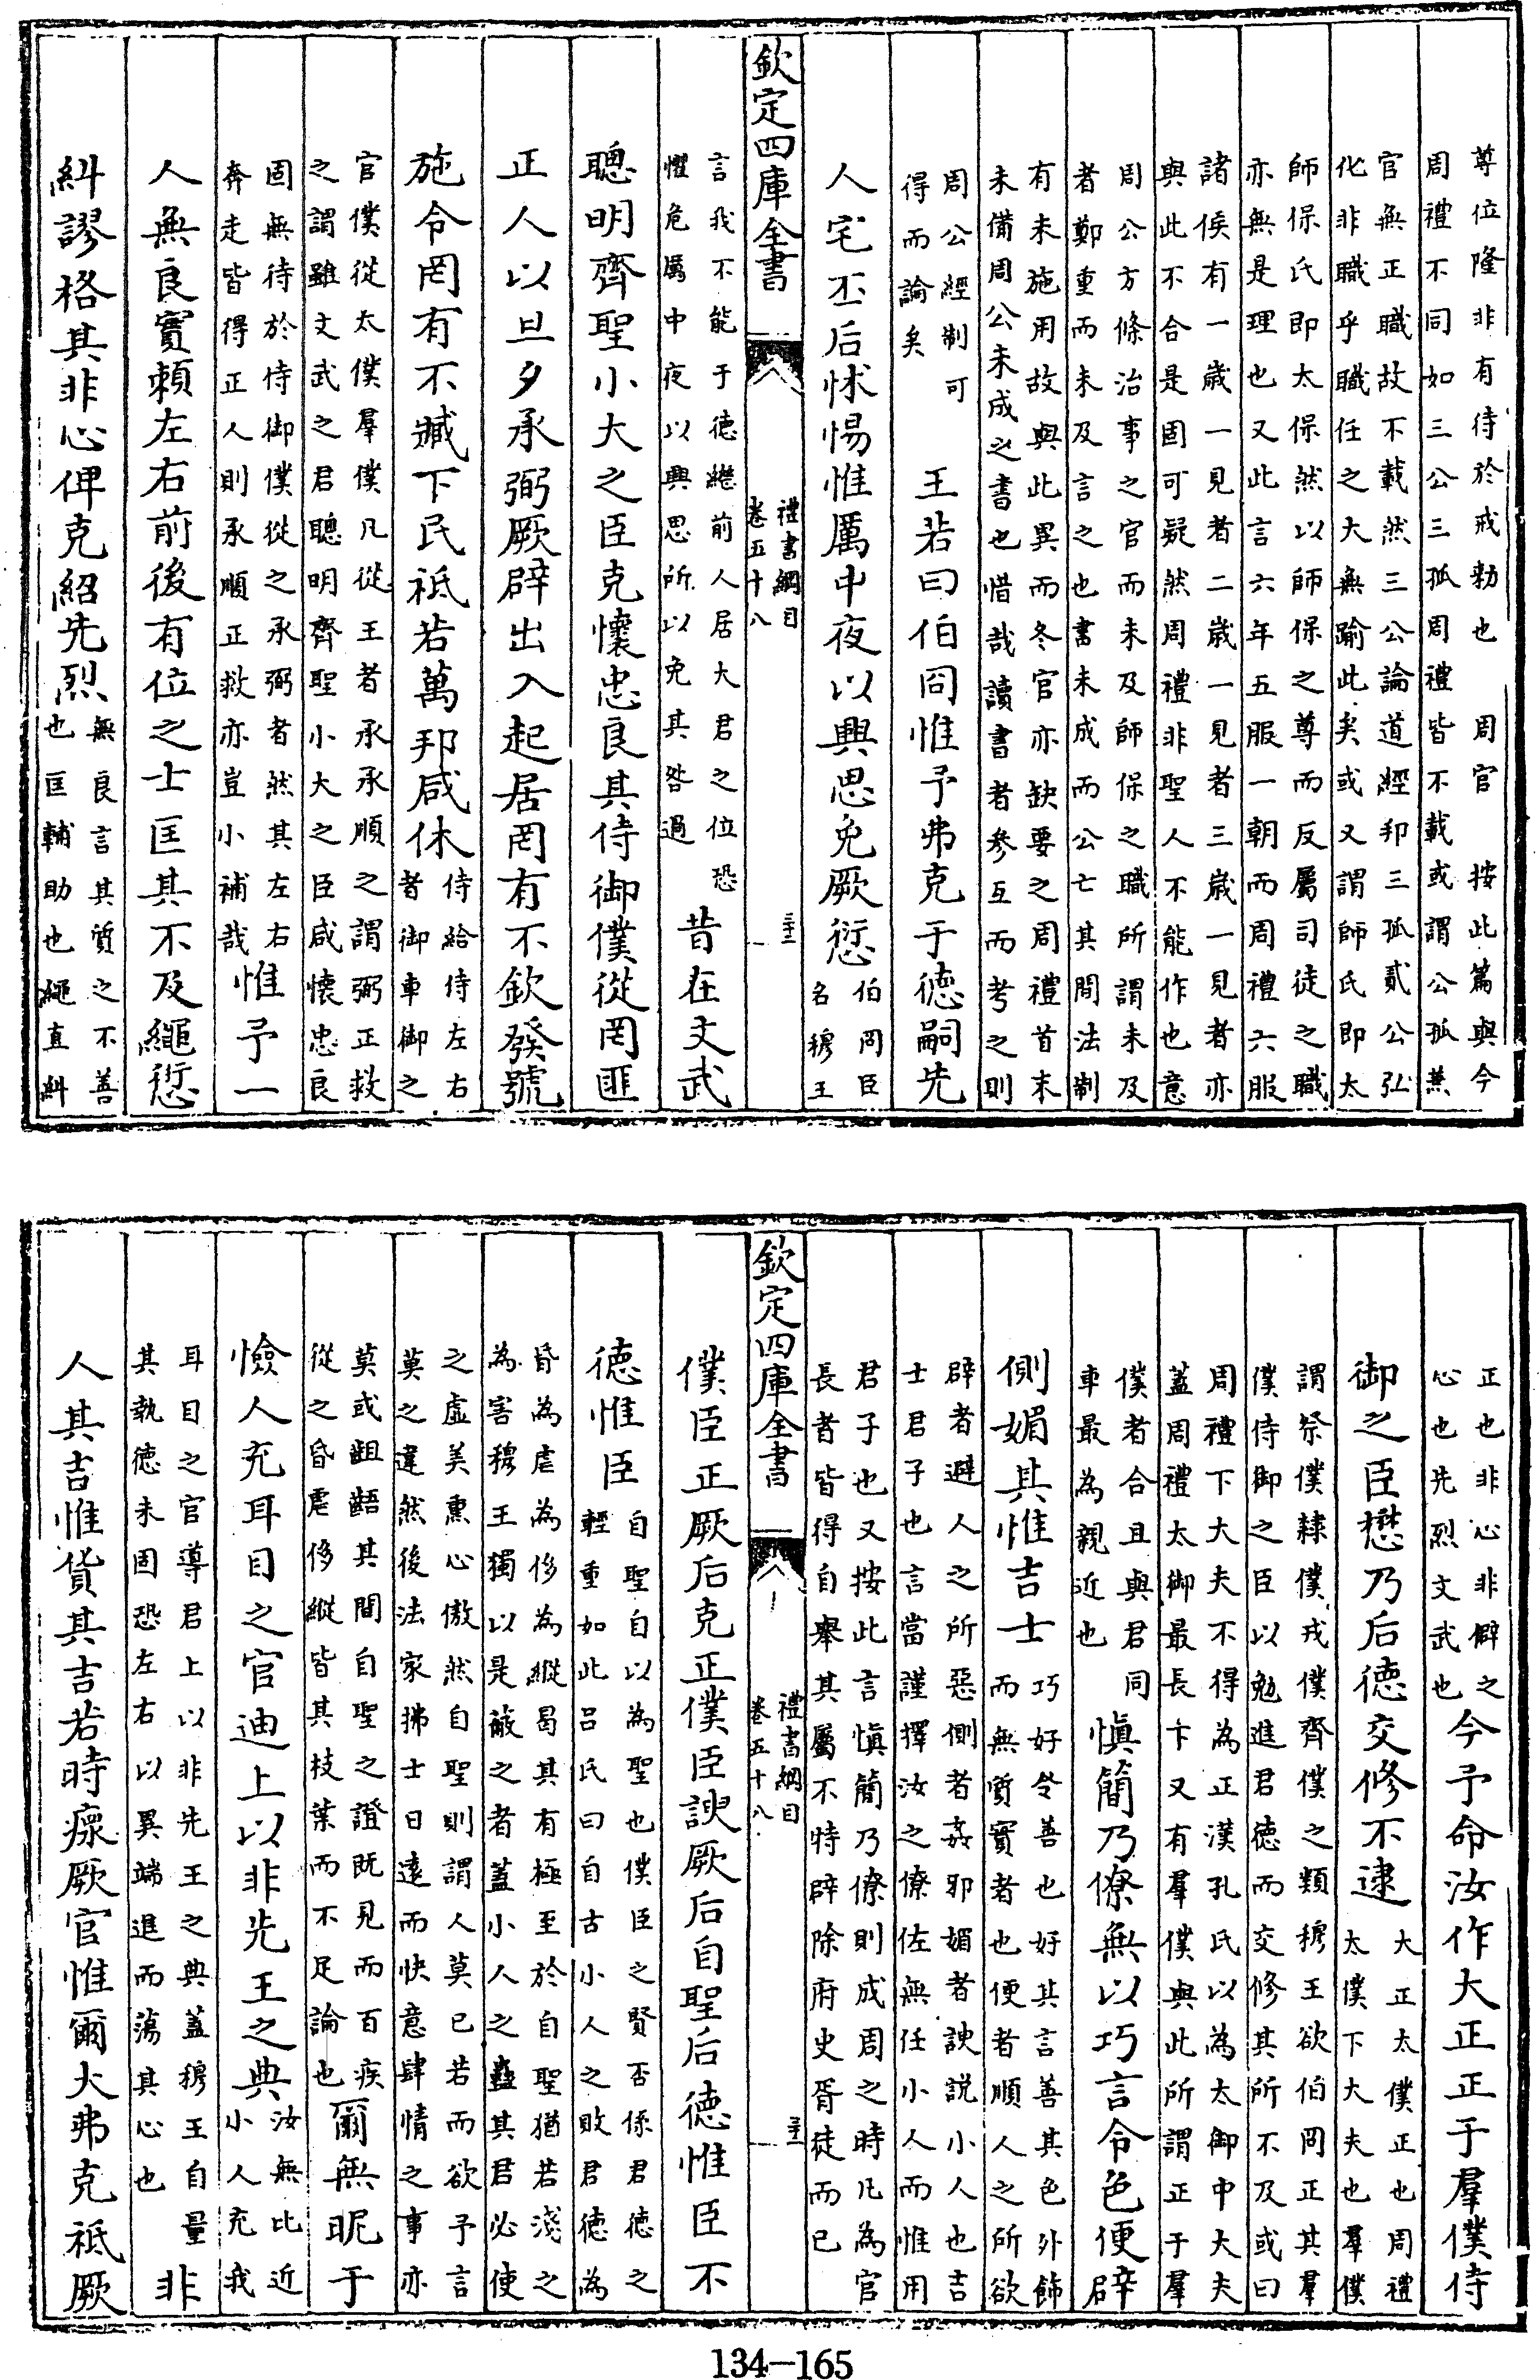 尊位隆非有待於戒勑也　周官　按此篇與今
周禮不同如三公三孤周禮皆不載或謂公孤兼
官無正職故不載然三公論道經邦三孤貳公弘
化非職乎職任之大無踰此矣或又謂師氏即太
師保氏即太保然以師保之尊而反屬司徒之職
亦無是理也又此言六年五服一朝而周禮六服
諸侯有一歲一見者二歲一見者三歲一見者亦
與此不合是固可疑然周禮非聖人不能作也意
周公方條治事之官而未及師保之職所謂未及
者鄭重而未及言之也書未成而公亡其間法制
有未施用故與此異而冬官亦缺要之周禮首末
未備周公未成之書也惜哉讀書者參互而考之則
周公經制可
得而論矣
王若曰伯冏惟予弗克于德嗣先
人宅丕后怵惕惟厲中夜以興思免厥愆
伯冏臣
名穆王
欽定四庫全書
禮書綱目
卷五十八
言我不能于德繼前人居大君之位恐
懼危厲中夜以興思所以免其咎過
昔在文武
聰明齊聖小大之臣克懷忠良其侍御僕從罔匪
正人以旦夕承弼厥辟出入起居罔有不欽發號
施令罔有不臧下民祗若萬邦咸休
侍給侍左右
者御車御之
官僕從太僕羣僕凡從王者承承順之謂弼正救
之謂雖文武之君聰明齊聖小大之臣咸懷忠良
固無待於侍御僕從之承弼者然其左右
奔走皆得正人則承順正救亦豈小補哉
惟予一
人無良實賴左右前後有位之士匡其不及繩愆
糾謬格其非心俾克紹先烈
無良言其質之不善
也匡輔助也繩直糾
正也非心非僻之
心也先烈文武也
今予命汝作大正正于羣僕侍
御之臣懋乃后德交修不逮
大正太僕正也周禮
太僕下大夫也羣僕
謂祭僕隸僕戎僕齊僕之類穆王欲伯冏正其羣
僕侍御之臣以勉進君德而交修其所不及或曰
周禮下大夫不得為正漢孔氏以為太御中大夫
蓋周禮太御最長下又有羣僕與此所謂正于羣
僕者合且與君同
車最為親近也
慎簡乃僚無以巧言令色便辟
側媚其惟吉士
巧好令善也好其言善其色外飾
而無質實者也便者順人之所欲
辟者避人之所惡側者姦邪媚者諛說小人也吉
士君子也言當謹擇汝之僚佐無任小人而惟用
君子也又按此言慎簡乃僚則成周之時凡為官
長者皆得自舉其屬不特辟除府史胥徒而已
欽定四庫全書
禮書綱目
卷五十八
僕臣正厥后克正僕臣諛厥后自聖后德惟臣不
德惟臣
自聖自以為聖也僕臣之賢否係君德之
輕重如此呂氏曰自古小人之敗君德為
昏為虐為侈為縱曷其有極至於自聖猶若淺之
為害穆王獨以是蔽之者蓋小人之蠱其君必使
之虛美熏心傲然自聖則謂人莫己若而欲予言
莫之違然後法家拂士日遠而快意肆情之事亦
莫或齟齬其間自聖之證既見而百疾
從之昏虐侈縱皆其枝葉而不足論也
爾無昵于
憸人充耳目之官迪上以非先王之典
汝無比近
小人充我
耳目之官導君上以非先王之典蓋穆王自量
其執德未固恐左右以異端進而蕩其心也
非
人其吉惟貨其吉若時瘝厥官惟爾大弗克祗厥
134—165